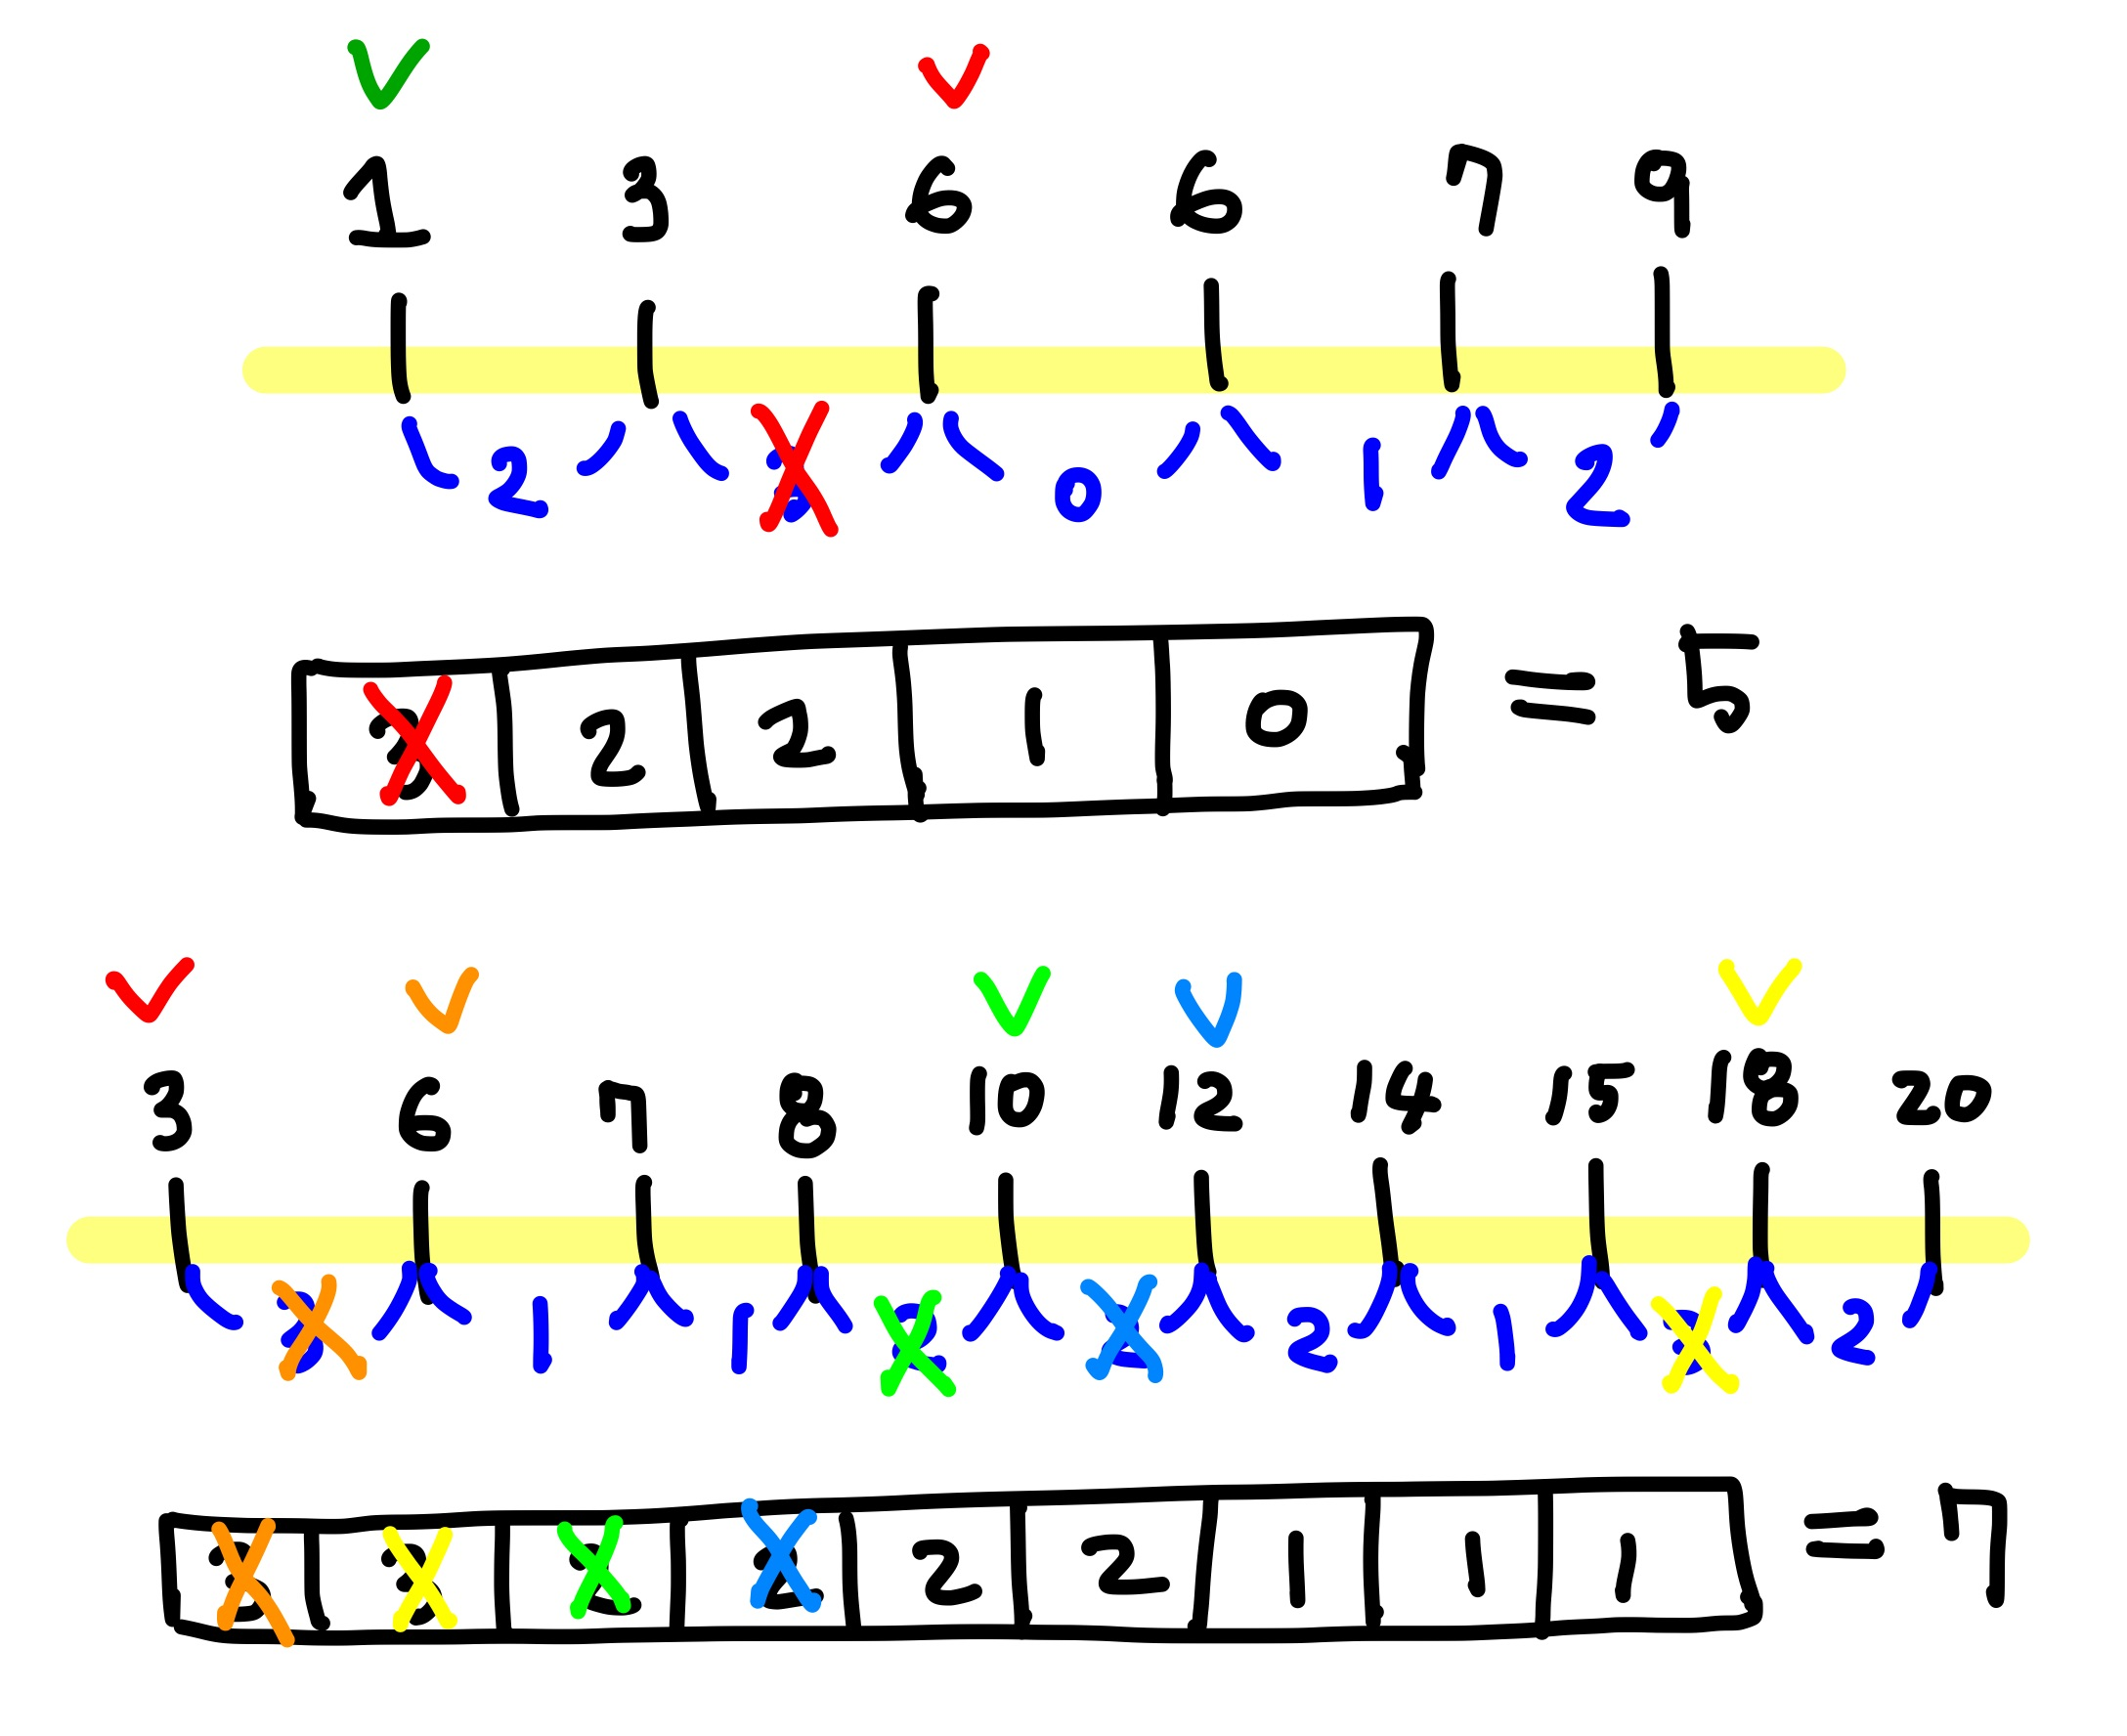 1 3 6 6 7 9
2 3 0 1 2
3 2 2 1 0 = 5
3 6 7 8 10 12 14 15 18 20
3 1 1 2 2 2 1 3 2
3 3 2 2 2 2 1 1 1 = 7